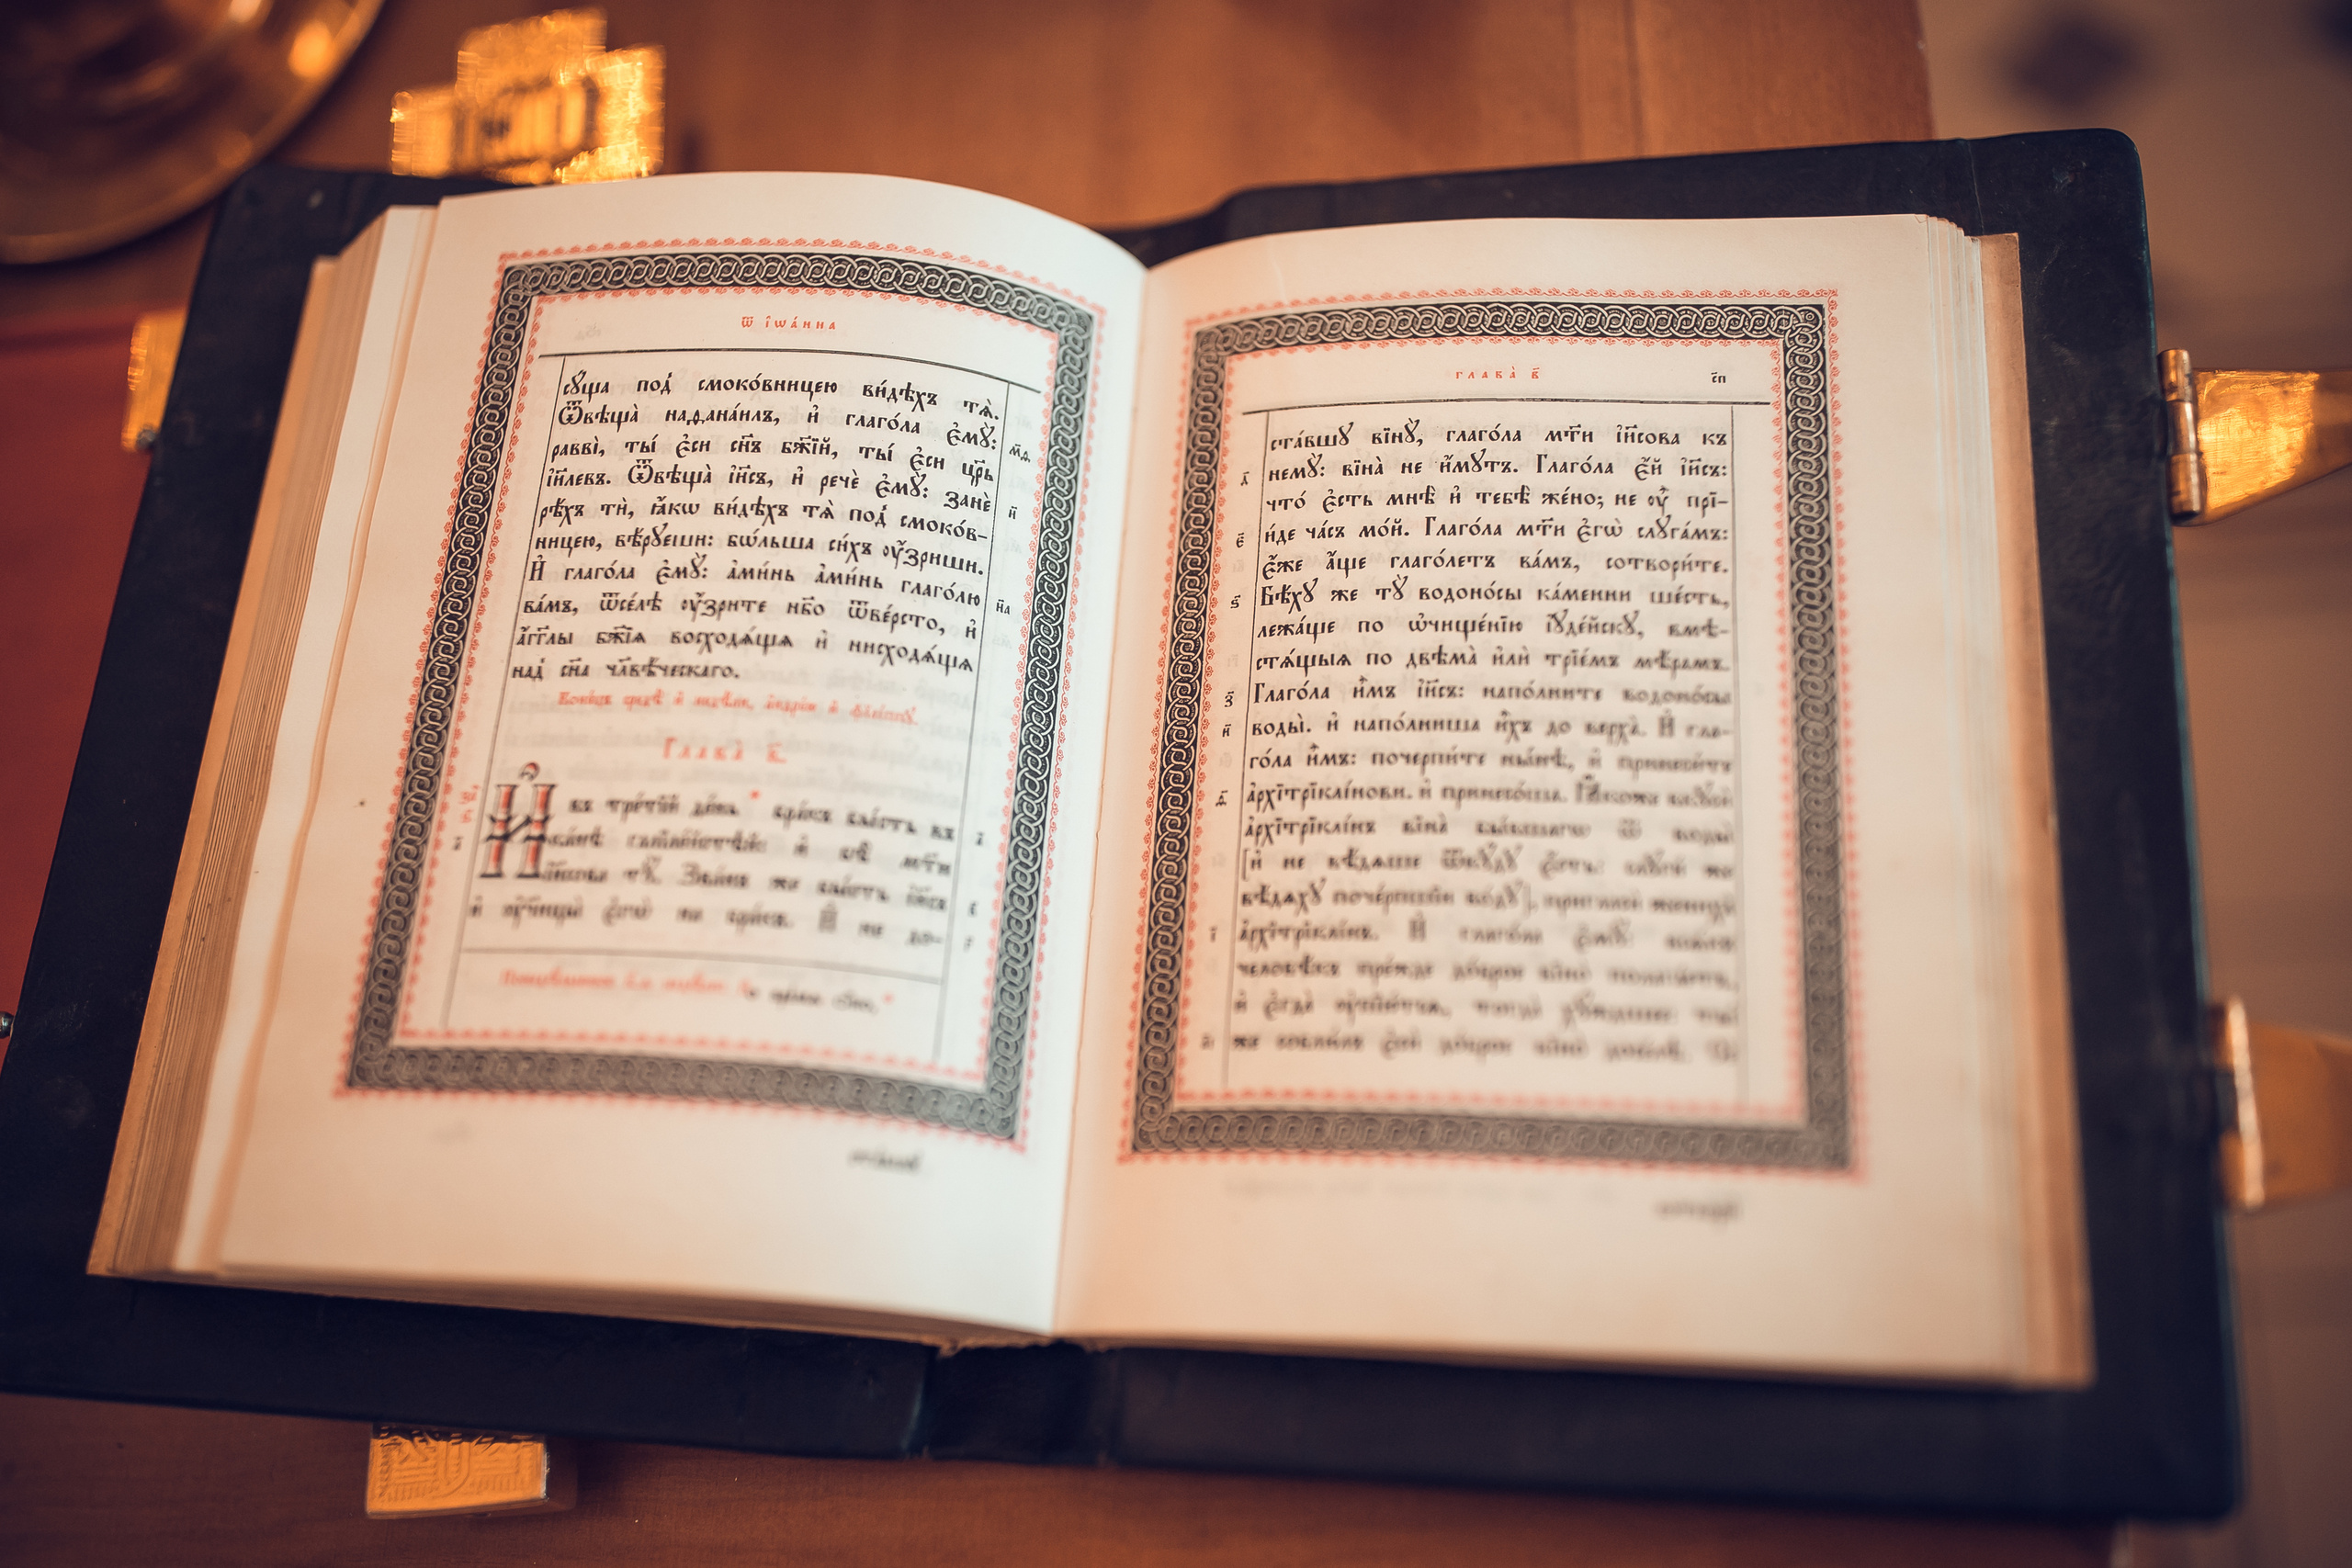 ѿ і҆ѡа́нна
сꙋ́ща под̾ смоко́вницею ви́дѣхъ тѧ̀.
Ѿвѣща̀ наѳана́илъ, и҆ глаго́ла є҆мꙋ̀:
равві̀, ты́ є҆си сн҃ъ бж҃їй, ты́ є҆си цр҃ь
і҆и҃левъ. Ѿвѣща̀ і҆и҃съ, и҆ речѐ є҆мꙋ̀: занѐ
рѣ́хъ тѝ, ꙗ҆́кѡ ви́дѣхъ тѧ̀ под̾ смоко́в-
ницею, вѣ́рꙋеши: бѡ́льша си́хъ ᲂу҆́зриши.
И҆ глаго́ла є҆мꙋ̀: а҆ми́нь а҆ми́нь глаго́лю
ва́мъ, ѿсе́лѣ ᲂу҆́зрите нб҃о ѿве́рсто, и҆
а҆́гг҃лы бж҃їѧ восходѧ́щѧ и҆ нисходѧ́щѧ
над̾ сн҃а чл҃вѣ́ческаго.
Глава̀ в҃
И҆ въ тре́тїй де́нь бра́къ бы́сть въ
ка́нѣ и҆ бѣ̀ мт҃и
і҆и҃сова тꙋ̀. Зва́нъ же бы́сть і҆и҃съ
и҆ є҆гѡ̀ на бра́къ. И҆ не до-
м҃ѳ
н҃
н҃а
глава̀ в҃
с҃п
ста́вшꙋ вїнꙋ̀, глаго́ла мт҃и і҆и҃сова къ
немꙋ̀: вїна̀ не и҆́мꙋтъ. Глаго́ла є҆́й і҆и҃съ:
что́ є҆сть мнѣ̀ и҆ тебѣ̀ же́но; не ᲂу҆̀ прї-
и́де ча́съ мо́й. Глаго́ла мт҃и є҆гѡ̀ слꙋга́мъ:
є҆́же а҆́ще глаго́летъ ва́мъ, сотвори́те.
Бѣ́хꙋ же тꙋ̀ водоно́сы ка́менни ше́сть,
лежа́ще по ѡ҆чище́нїю і҆ꙋде́йскꙋ, вмѣ-
стѧ́щыѧ по двѣма̀ и҆лѝ трїе́мъ мѣ́рамъ.
Глаго́ла и҆̀мъ і҆и҃съ: напо́лните водоно́сы
воды̀. и҆ напо́лниша и҆̀хъ до верха̀. И҆ гла-
го́ла и҆̀мъ: почерпи́те ны́нѣ, и҆ принеси́те
а҆рхїтрїклі́нови. и҆ принесо́ша. Ꙗ҆́коже вкꙋсѝ
а҆рхїтрїклі́нъ вїна̀ бы́вшагѡ ѿ воды̀
[и҆ не вѣ́дѧше ѿкꙋ́дꙋ є҆́сть: слꙋги́ же
вѣ́дѧхꙋ поче́рпшїи во́дꙋ], пригласѝ женихà
а҆рхїтрїклі́нъ. И҆ глаго́ла є҆мꙋ̀:
человѣ́къ пре́жде до́брое вїно̀ полага́етъ,
и҆ є҆гда̀ тогда̀
же є҆сѝ до́брое вїно̀ досе́лѣ.
д҃
є҃
ѕ҃
з҃
и҃
ѳ҃
і҃